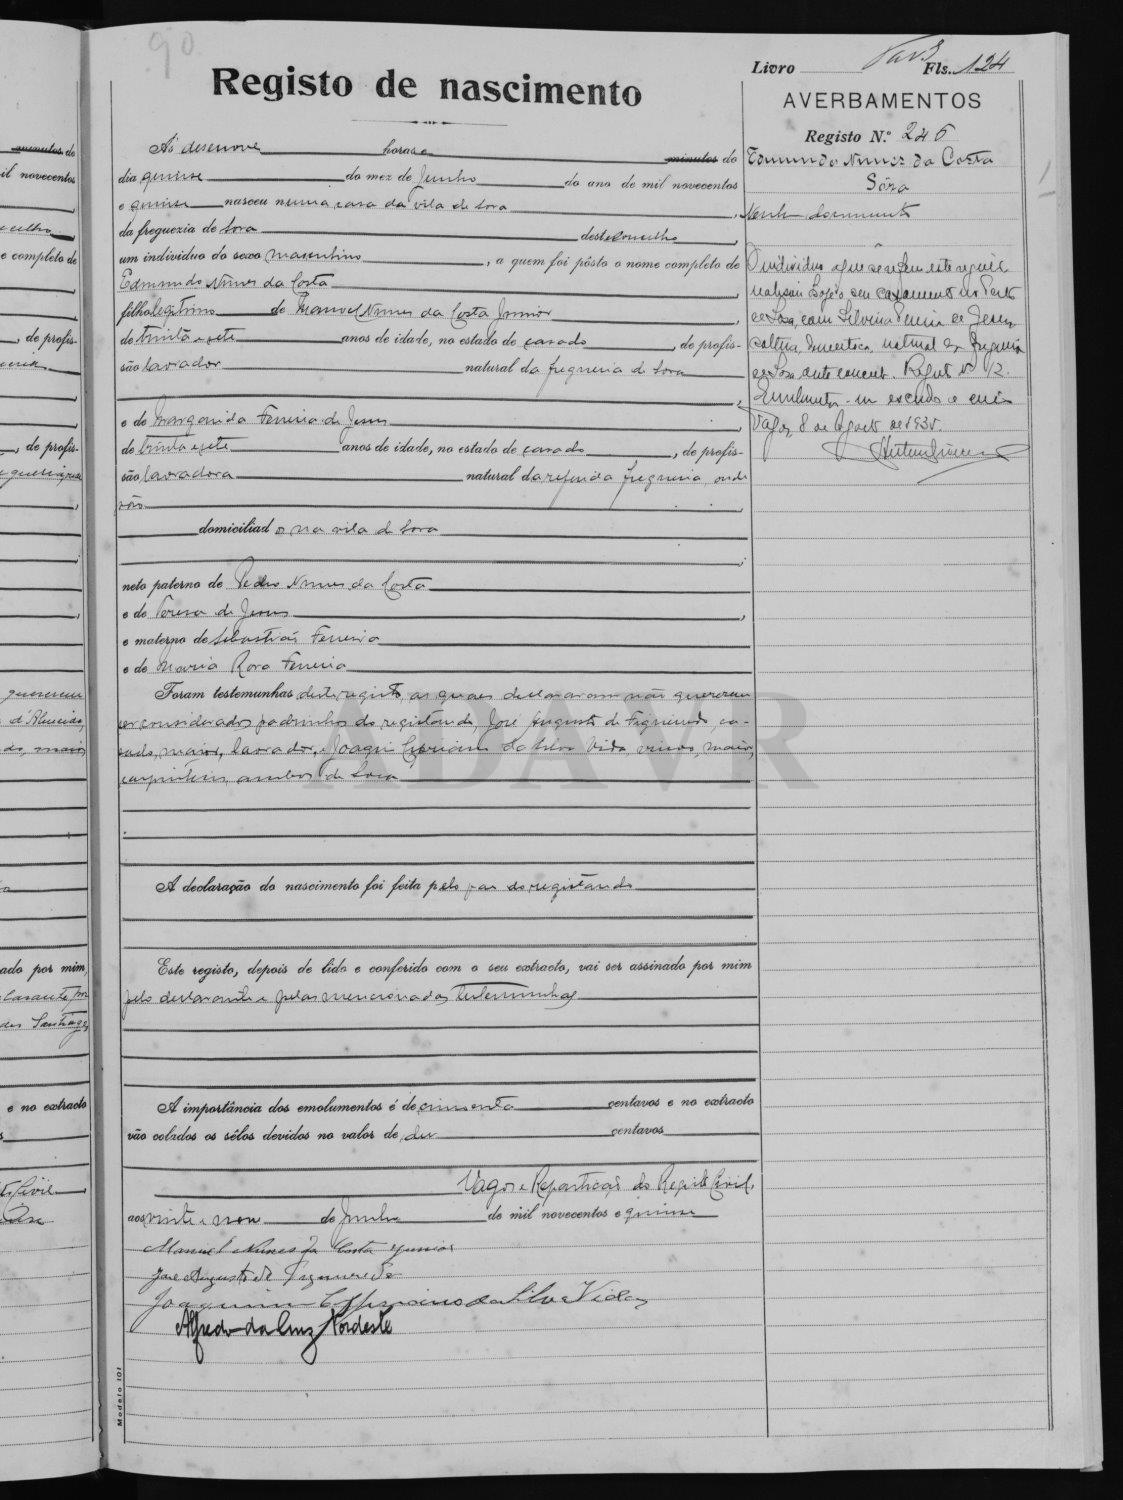 90
Livro Fls. 124
Registo de nascimento
AVERBAMENTOS
Registo N.º 246
Ás desenove horas e minutos do
dia quinse do mez de Junho do ano de mil novecentos
e quinse nasceu numa casa da vila de Sosa,
da freguezia de Sosa deste concelho,
um individuo do sexo masculino, a quem foi pôsto o nome completo de
Edmundo Nunes da Costa
filho legitimo de Manoel Nunes da Costa Junior,
de trinta e sete anos de idade, no estado de casado, de profis-
são lavrador natural da freguesia de Sosa
e de Margarida Ferreira de Jesus,
de trinta e sete anos de idade, no estado de casado, de profis-
são lavradora natural da referida freguesia onde
são
domiciliados na vila de Sosa
neto paterno de Pedro Nunes da Costa
e de Teresa de Jesus,
e materno de Sebastião Ferreira
e de Maria Rosa Ferreira
Foram testemunhas deste registo, as quaes declararam não quererem
ser considerados padrinhos do registando, José Augusto de Figueiredo, ca-
sado, maior, lavrador, e Joaquim Cipriano da Silva Vidal viuvo, maior,
carpinteiro, ambos de Sosa
A declaração do nascimento foi feita pelo pae do registando
Este registo, depois de lido e conferido com o seu extracto, vai ser assinado por mim
pelo declarante e pelas mencionadas testemunhas
A importância dos emolumentos é de cincoenta centavos e no extracto
vão colados os sêlos devidos no valor de dez centavos
Vagos e Repartição do Registo Civil,
aos vinte e nove de Junho de mil novecentos e quinse
Manuel Nunes da Costa Junior
José Augusto de Figueiredo
Joaquim Cypriano da Silva Vidal
Alfredo da Cruz Nordeste
Modelo 101
Edmundo Nunes da Costa
Sósa
Nenhum documento
O individuo a que se refere este registo
realisou hoje o seu casamento no Posto
de Sosa, com Silveria Pereira de Jesus,
solteira, domestica, natural da freguesia
de Sosa, deste concelho. Registo nº 12.
Emolumentos um escudo e
Vagos, 8 de Agosto de 1935.
ADAVR
minutos do
mil novecentos
e completo de
, de profis-
, de profis-
quererem
d'Almeida,
ado por mim,
e no extracto
Civil